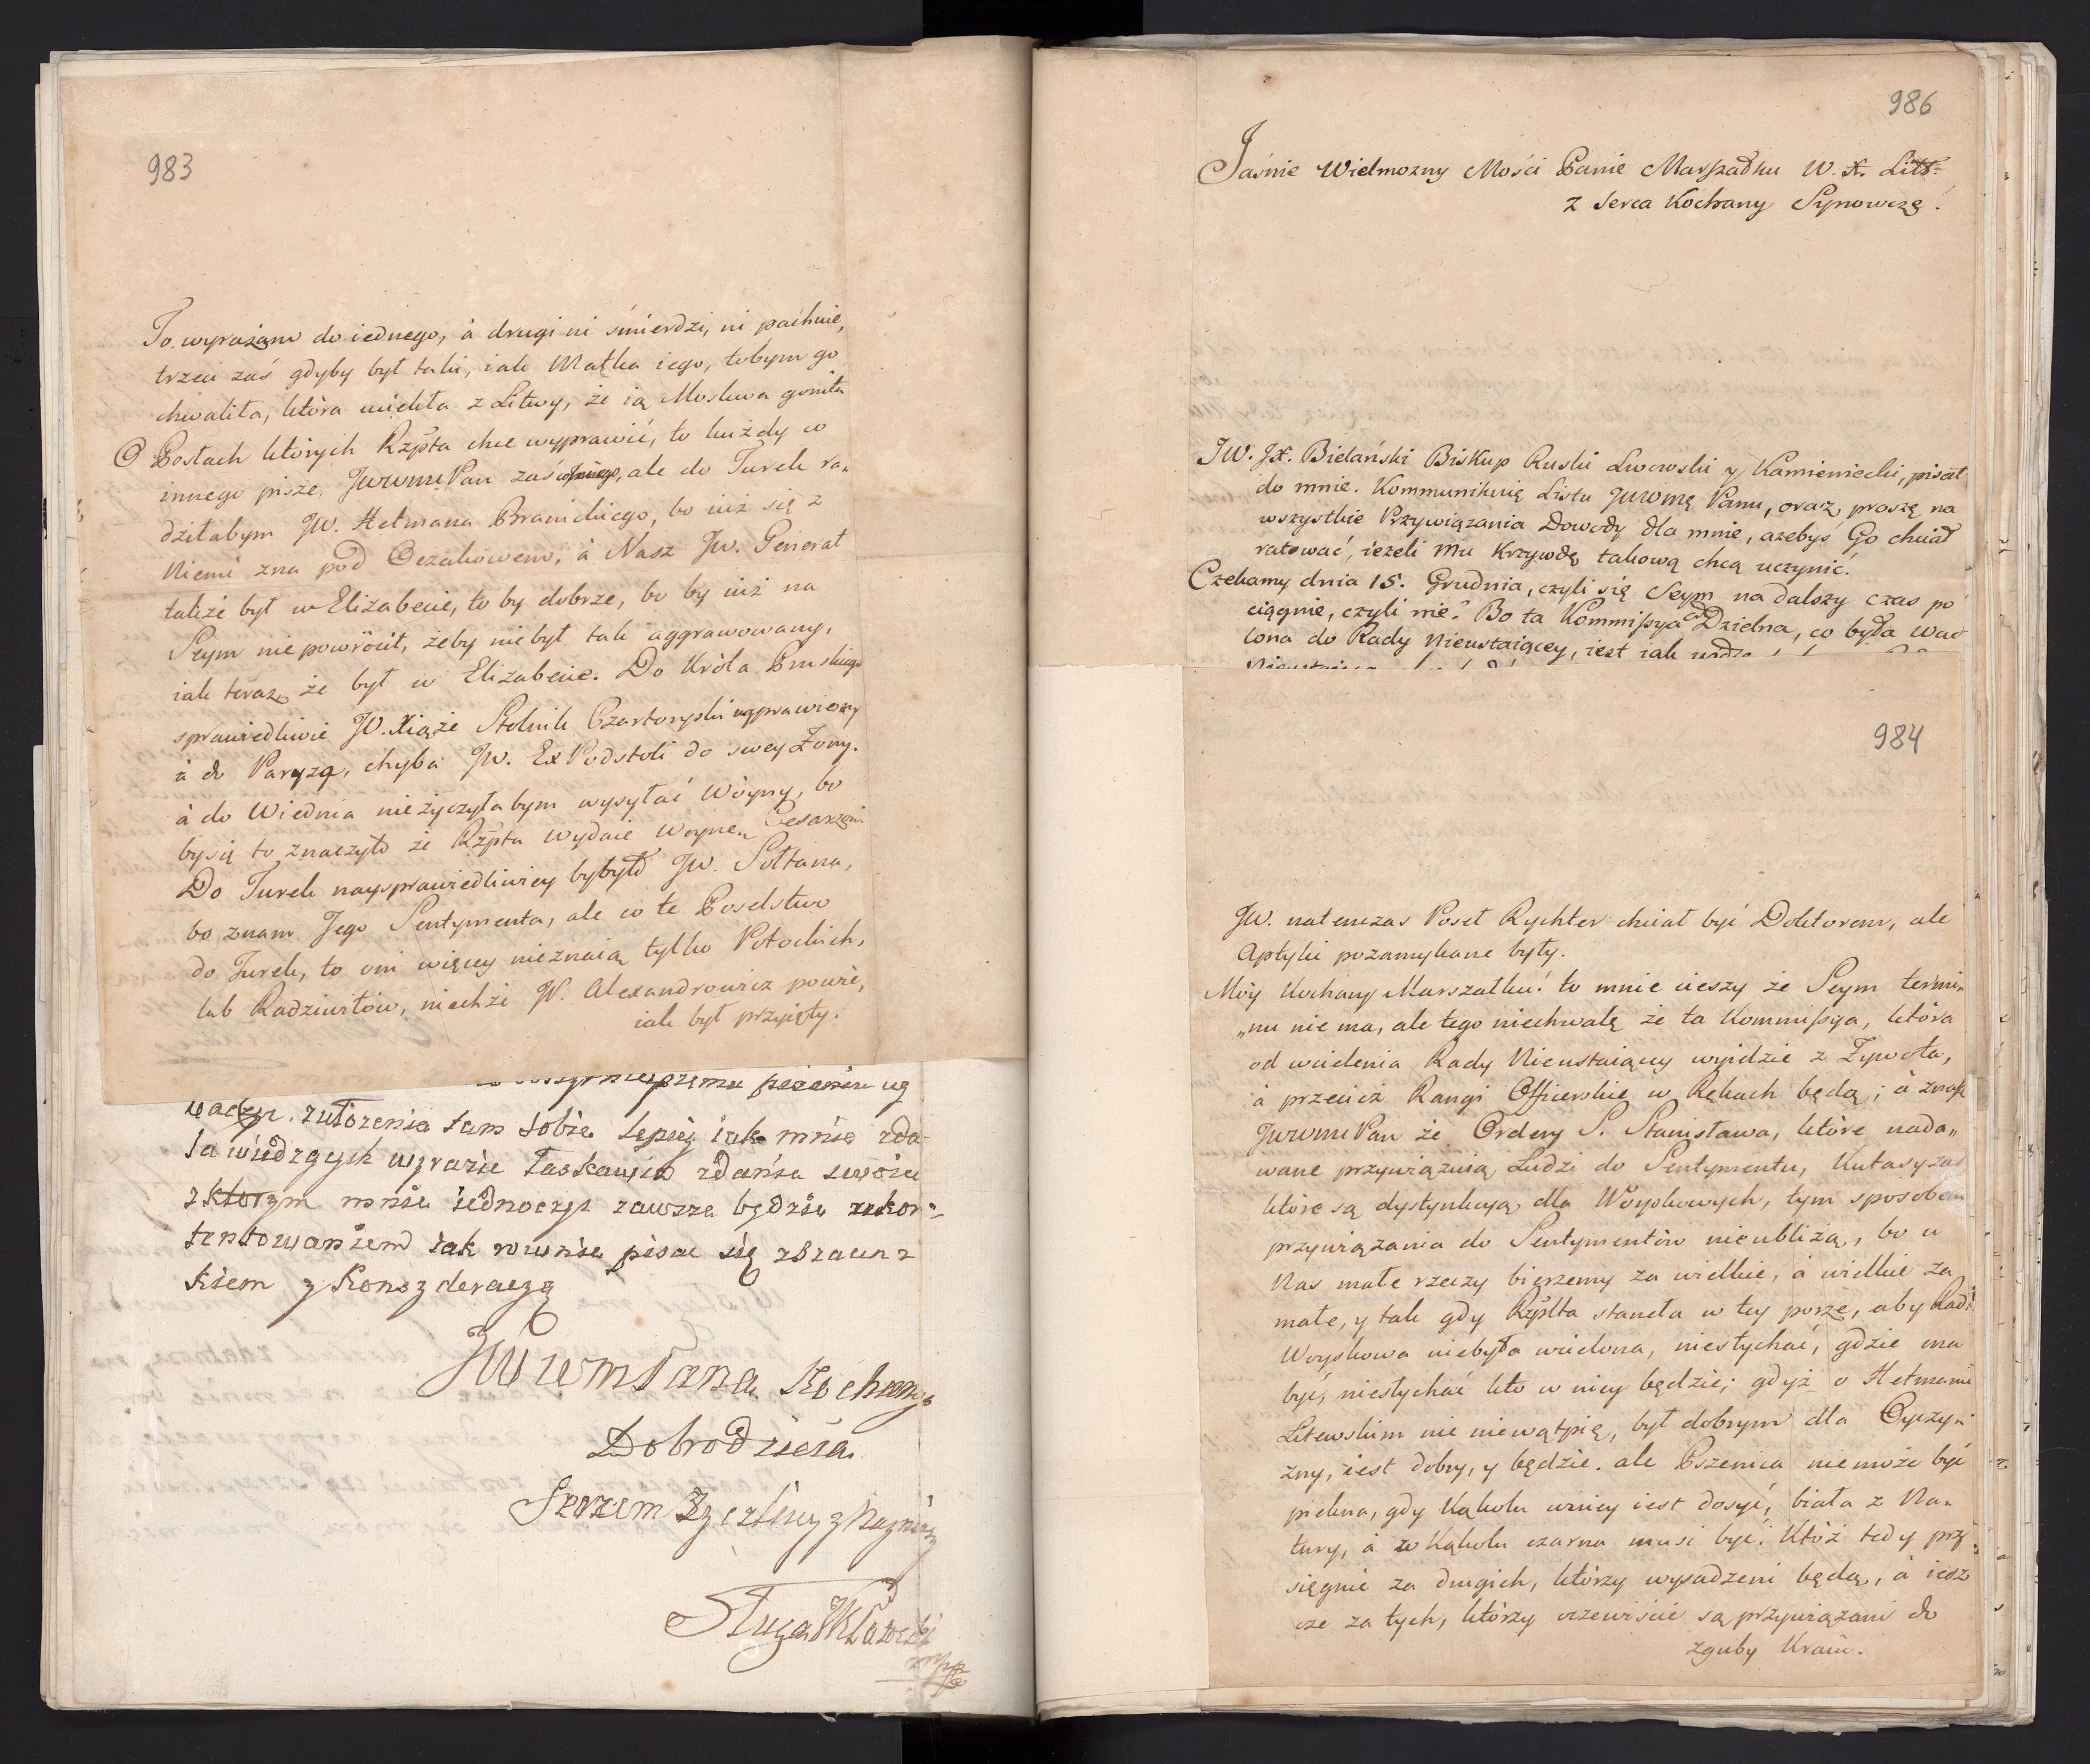 983
To wyrażam do iednego, à drugi ni śmierdzi, ni pachnie,
trzeci zaś gdyby był taki, iak Matka iego, tobym go
chwaliła, która uciekła z Litwy, że ią Moskwa goniła
O Posłach których Rzpta chce wyprawić, to każdy co
innego pisze, JWWMPan zaś innego, ale do Turek ra„
dziłabym JW. Hetmana Branickiego, bo iuż się z
Niemi zna pod Oczakowem, à Nasz JW. Generał
także był w Elizabecie, to by dobrze, bo by iuż na
Seym niepowrócił, żeby niebył tak aggrawowany,
iak teraz, że był w Elizabecie. Do Króla Pruskiego
sprawiedliwie JO. Xiąże Stolnik Czartoryski wyprawiony
à do Paryża, chyba JW. Ex Podstoli do swey Żony.
à do Wiednia nieżyczyłabym wysyłać Wóyny, bo
bysię to znaczyło że Rzpta wydaie Woynę Cesarzowi.
Do Turek naysprawiedliwiey bybyło JW. Sołtana,
bo znam Jego Sentymenta, ale co te Poselstwo
do Turek, to oni więcey nieznaią tylko Potockich,
lub Radziwiłłów, niechże W. Alexandrowicz powie,
iak był przyięty.
złożenia sam sobie lepiey iak mnie zda
ła wiedzących wyrazie Łaskawie zdania swoie
z ktorym mnie iednoczyć zawsze będzie ukon„
tentowaniem iak rownie pisac się z szacun
kiem y Konsyderacyą
JWWMPana Kochanego
Dobrodzieia
Szczerze Zyczliwy y Nayniższy
Sługa
mpp
986
Jaśnie Wielmozny Mości Panie Marszałku W. X. Litt:
z Serca Kochany Synowczę!
JW. JX. Bielański Biskup Ruski Lwowski y Kamieniecki, pisał
do mnie. Kommunikuię Listu JWWMę Panu, oraz proszę na
wszystkie Przywiązania Dowody dla mnie, azebyś Go chciał
ratować, ieżeli Mu Krzywdę takową chcą uczynić.
Czekamy dnia 15. Grudnia, czyli się Seym na dalszy czas po
ciągnie, czyli nie? Bo ta Kommissya Dzielna, co była wcie
lona do Rady Nieustaiącey, iest iak
984
JW. natenczas Poseł Rychter chciał być Doktorem, ale
Aptyki pozamykane były.
Móy Kochany Marszałku! to mnie cieszy że Seym termi„
„nu nie ma, ale tego niechwalę że ta Kommissya, która
od wcielenia Rady Nieustaiącey wyidzie z Żywota,
à przecież Rangi Officerskie w Rękach będą; à znasz
JWWMPan że Ordery S. Stanisława, które nada„
wane przywiązuią Ludzi do Sentymentu, Kutasy zaś
które są dystynkcyą dla Woyskowych, tym sposobem
przywiązania do Sentymentów nieubliżą, bo u
Nas małe rzeczy bierzemy za wielkie, à wielkie za
małe, y tak gdy Rzplta stanęła w tey porze, aby Rada
Woyskowa niebyła wcielona, niesłychać, gdzie ma
być, niesłychać kto w niey będzie; gdyż o Hetmanie
Litewskim nic niewątpię, był dobrym dla Oyczy„
zny, iest dobry, y będzie. ale Pszenica niemoże być
piękna, gdy Kąkolu wniey iest dosyć, biała z Na„
tury, à w Kąkolu czarna musi być. Któż tedy przy
sięgnie za drugich, którzy wysadzeni będą, à iesz
cze za tych, którzy oczewiście są przywiązani do
zguby Kraiu.